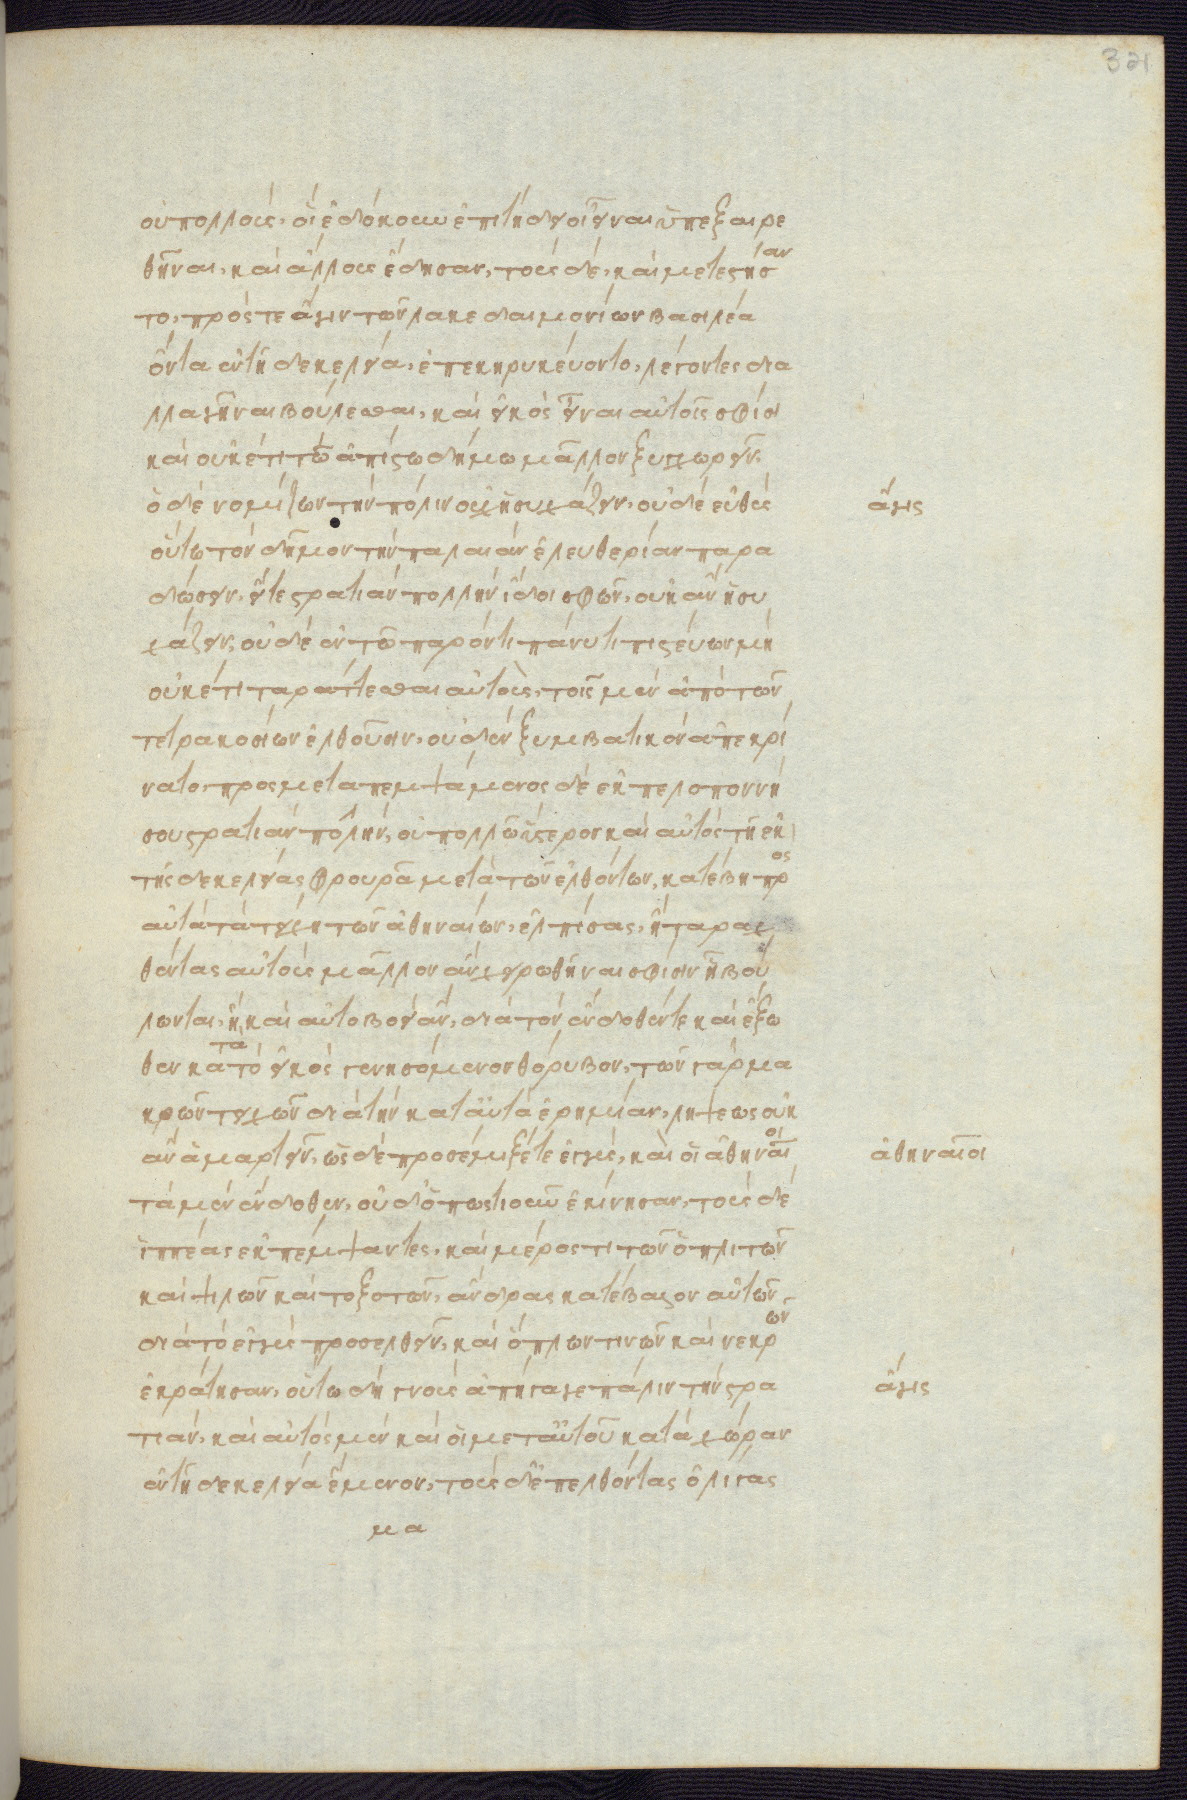 321
οὐ πολλοὺς, οἳ ἐδόκουν ἐπιτήδειοι εἶναι ὑπεξαιρε
θῆναι, καὶ ἄλλους ἔδησαν, τοὺς δὲ, καὶ μετεστήσαν
το, πρός τε ἄγιν τῶν λακεδαιμονίων βασιλέα
ὄντα ἐν τῇ δεκελεία, ἐπεκηρυκεύοντο, λέγοντες δια
λλαγῆναι βούλεσθαι, καὶ εἰκὸς εἶναι αὐτοῖς σφίσι
καὶ οὐκέτι τῶ ἀπίστω δήμω μᾶλλον ξυγχωρεῖν.
ὁ δὲ νομίζων τὴν πόλιν οὐχ ἡσυχάζειν, οὐδὲ εὐθὺς
ἄγις
οὕτω τὸν δῆμον τὴν παλαιὰν ἐλευθερίαν παρα
δώσειν, εἴ τε στρατιὰν πολλὴν ἴδοι σφῶν, οὐκ ἂν ἡσυ
χάζειν, οὐδὲ ἐν τῶ παρόντι πάνυ τι πιστεύων μὴ
οὐκέτι ταράττεσθαι αὐτοὺς, τοῖς μὲν ἀπὸ τῶν
τετρακοσίων ἐλθοῦσιν, οὐδὲν ξυμβατικὸν ἀπεκρί
νατο, προσμεταπεμψάμενος δὲ ἐκ πελοποννή
σου στρατιὰν πολλὴν, οὐ πολλῶ ὕστερον καὶ αὐτὸς τῇ ἐκ
τῆς δεκελείας φρουρᾶ μετὰ τῶν ἐλθόντων, κατέβη πρὸς
αὐτὰ τὰ τείχη τῶν ἀθηναίων, ἐλπίσας, ἢ ταραχ
θέντας αὐτοὺς μᾶλλον ἂν χειρωθῆναι σφίσιν ἧ βού
λωνται, ἢ καὶ αὐτοβοεὶ ἂν, διὰ τὸν ἔνδοθέν τε καὶ ἔξω
θεν κατὰ τὸ εἰκὸς γενησόμενον θόρυβον, τῶν γὰρ μα
κρῶν τειχῶν διὰ τὴν κατ' αὐτὰ ἐρημίαν, λήψεως οὐκ
ἂν ἁμαρτεῖν, ὡς δὲ προσέμιξέ τε ἐγγὺς, καὶ οἱ ἀθηναῖοι
ἀθηναῖοι
τὰ μὲν ἔνδοθεν, οὐδ' ὁπωστιοῦν ἐκίνησαν, τοὺς δὲ
ἱππέας ἐκπέμψαντες, καὶ μέρος τι τῶν ὁπλιτῶν
καὶ ψιλῶν καὶ τοξοτῶν, ἄνδρας κατέβαλον αὐτῶν
διὰ τὸ ἐγγὺς προσελθεῖν, καὶ ὅπλων τινῶν καὶ νεκρῶν
ἐκράτησαν, οὕτω δὴ γνοὺς ἀπήγαγε πάλιν τὴν στρα
ἄγις
τιὰν, καὶ αὐτὸς μὲν καὶ οἱ μετ' αὐτοῦ κατὰ χώραν
ἐν τῇ δεκελεία ἔμενον, τοὺς δ' ἐπελθόντας ὀλίγας
μα